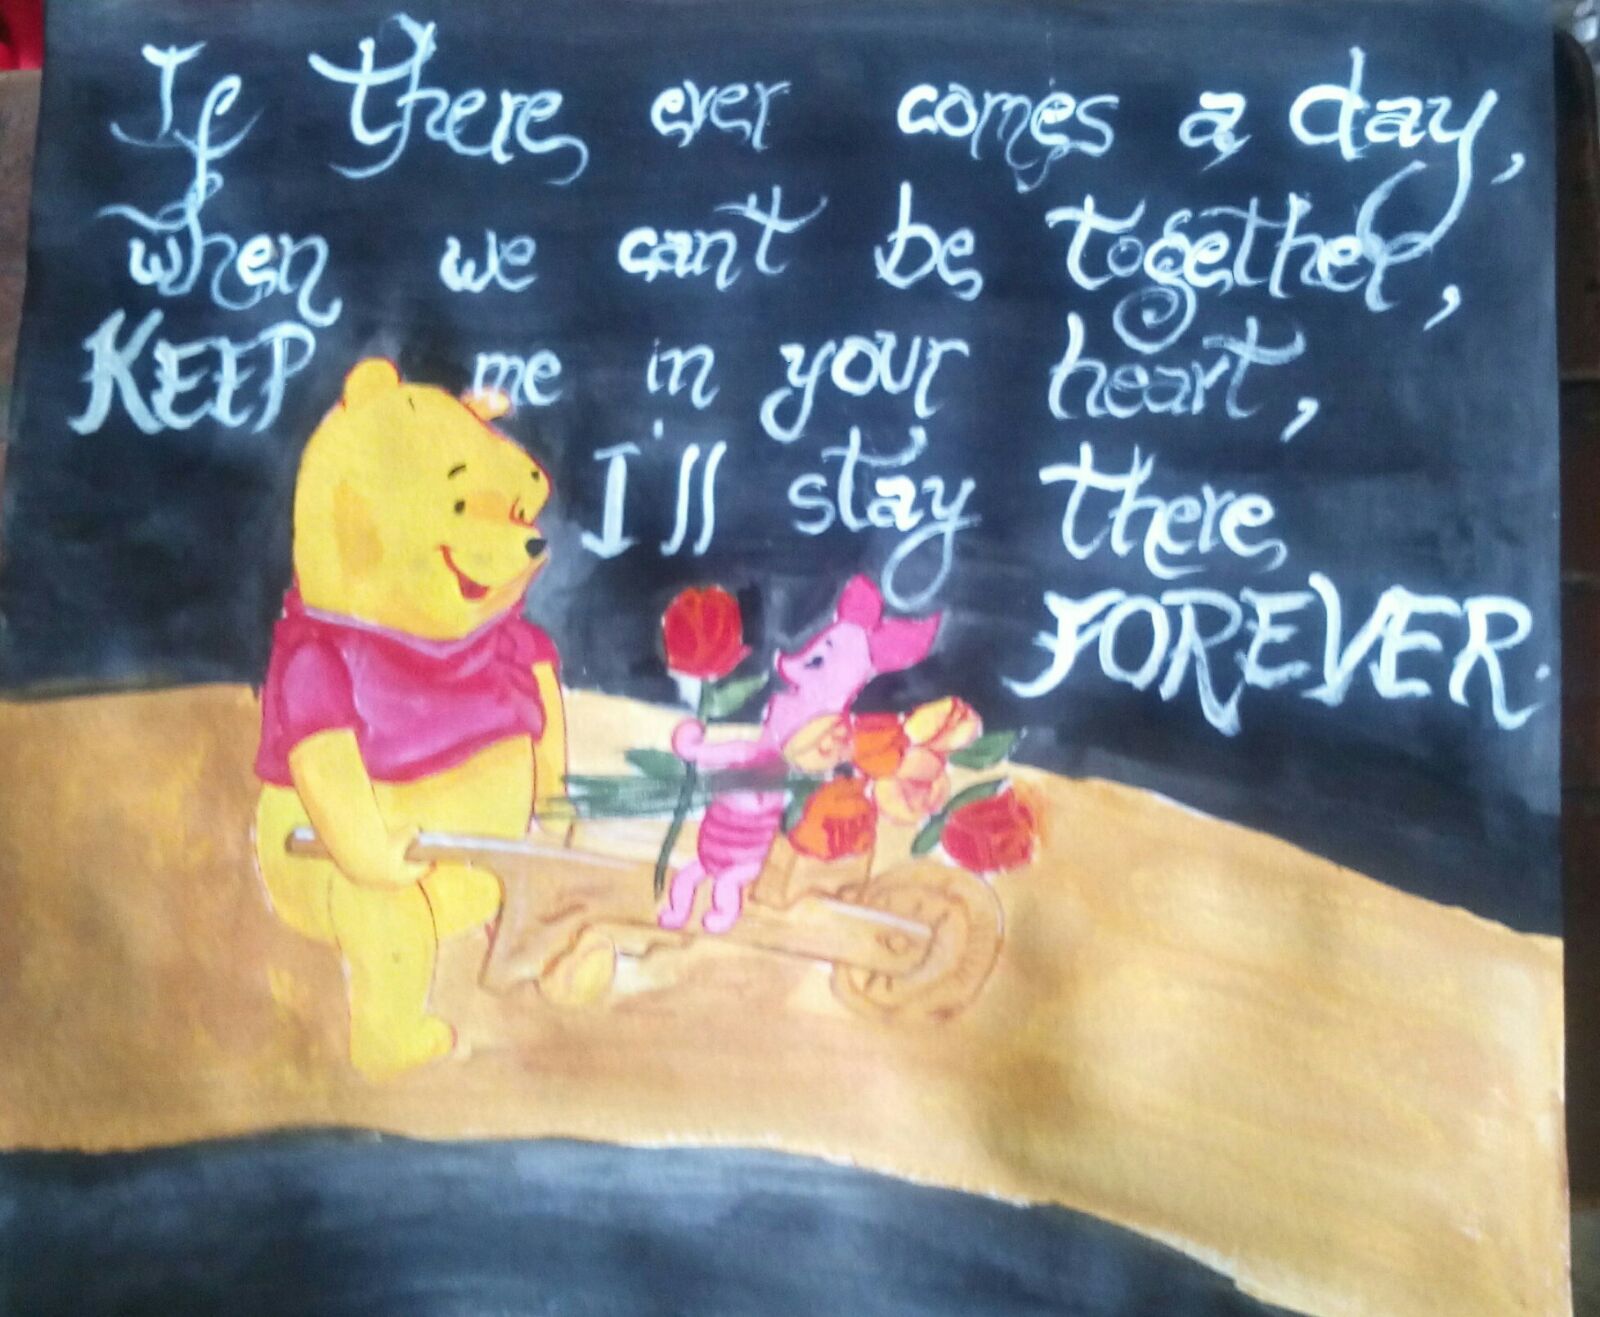 If there ever comes a day,
when we can't be together,
KEEP me in your heart,
I'll stay there
FOREVER.